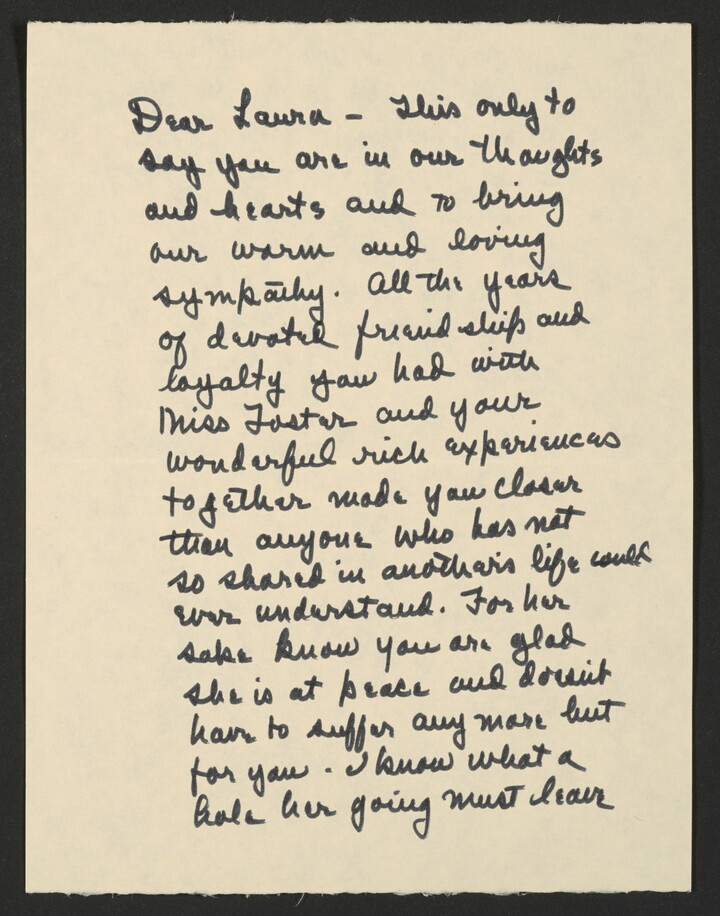 Dear Laura - This only to
say you are in our thoughts
and hearts and to bring
our warm and loving
sympathy. All the years
of devoted friendship and
loyalty you had with
Miss Foster and your
wonderful rich experiences
together made you closer
than anyone who has not
so shared in another's life could
ever understand. For her
sake know you are glad
she is at peace and doesn't
have to suffer any more but
for you - I know what a
hole her going must leave